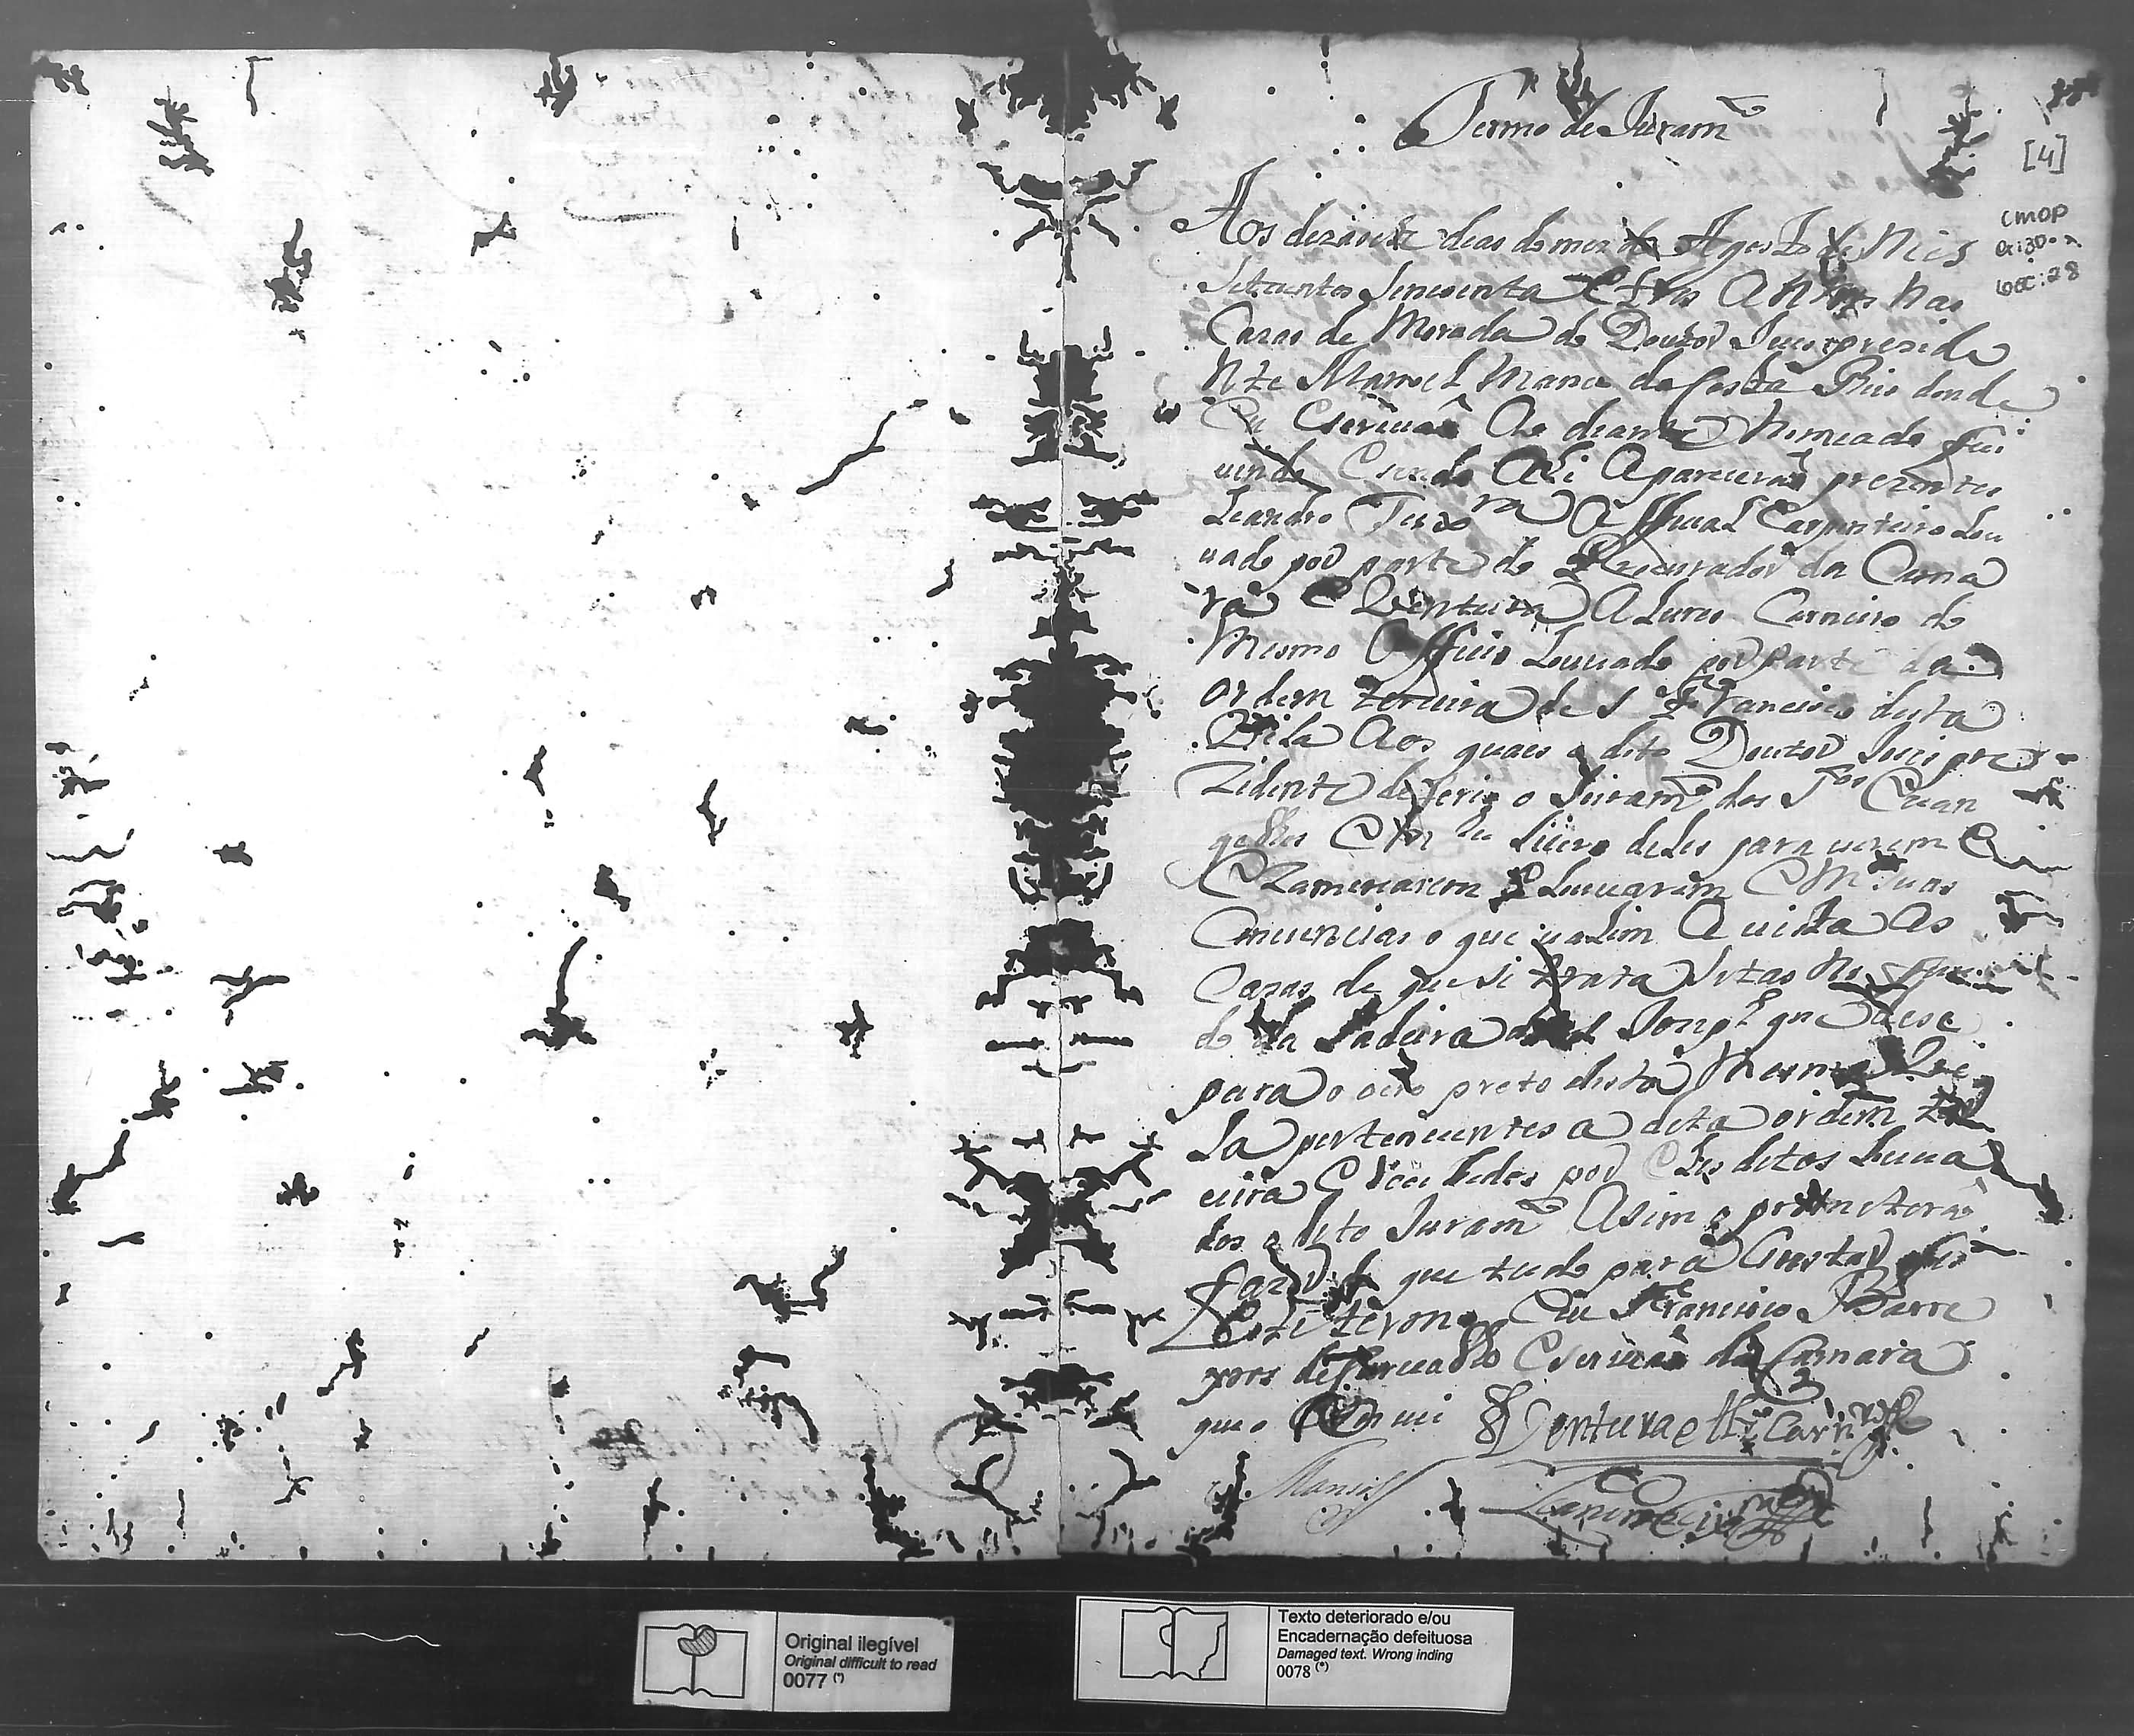 Termo de Juramto
[4]
Aos dezasete dias do mes de Agosto de Mil
CMOP
cx: 30
Doc: 28
Setecentos Secenta e tres Annos nas
Cazas de Morada do Doutor Juis prezide
Nte Manoel Manco da Costa Reis donde
Eu Escrivaõ Ao diante Nomeado fui
vindo e sendo Ali Apareceraõ prezentes
Leandro Teixra Official Carpinteiro Lou
vado por parte do Procurador da Cama
ra e Ventura Alures Carneiro do
Mesmo Officio Louvado por parte da
Ordem terceira de S Francisco desta
Vila Aos quaes o dito Doutor Juis pre
zidente deferio o Juramto dos Stos Evan
gelhos em hu Livro deles para verem e
Ezaminarem e Louvarem em suas
Conciencias o que valim A vista As
Cazas de que se trata Sitas no
do da Ladeira
para o ouro preto desta Mesma Vi
la pertencentes a dita ordem ter
ceira e recebido por eles ditos Louva
dos o dito Juramto Asim o prometeraõ
fazer de que tudo para Constar fis
Este termo Eu Francisco Barre
yros de Carvalho Escrivaõ da Camara
que o Escrevi Ventura Alz Carnro
Manco
Leandro Teixra
Original ilegível
Original difficult to read
0077 (*)
Texto deteriorado e/ou
Encadernação defeituosa
Damaged text. Wrong inding
0078 (*)